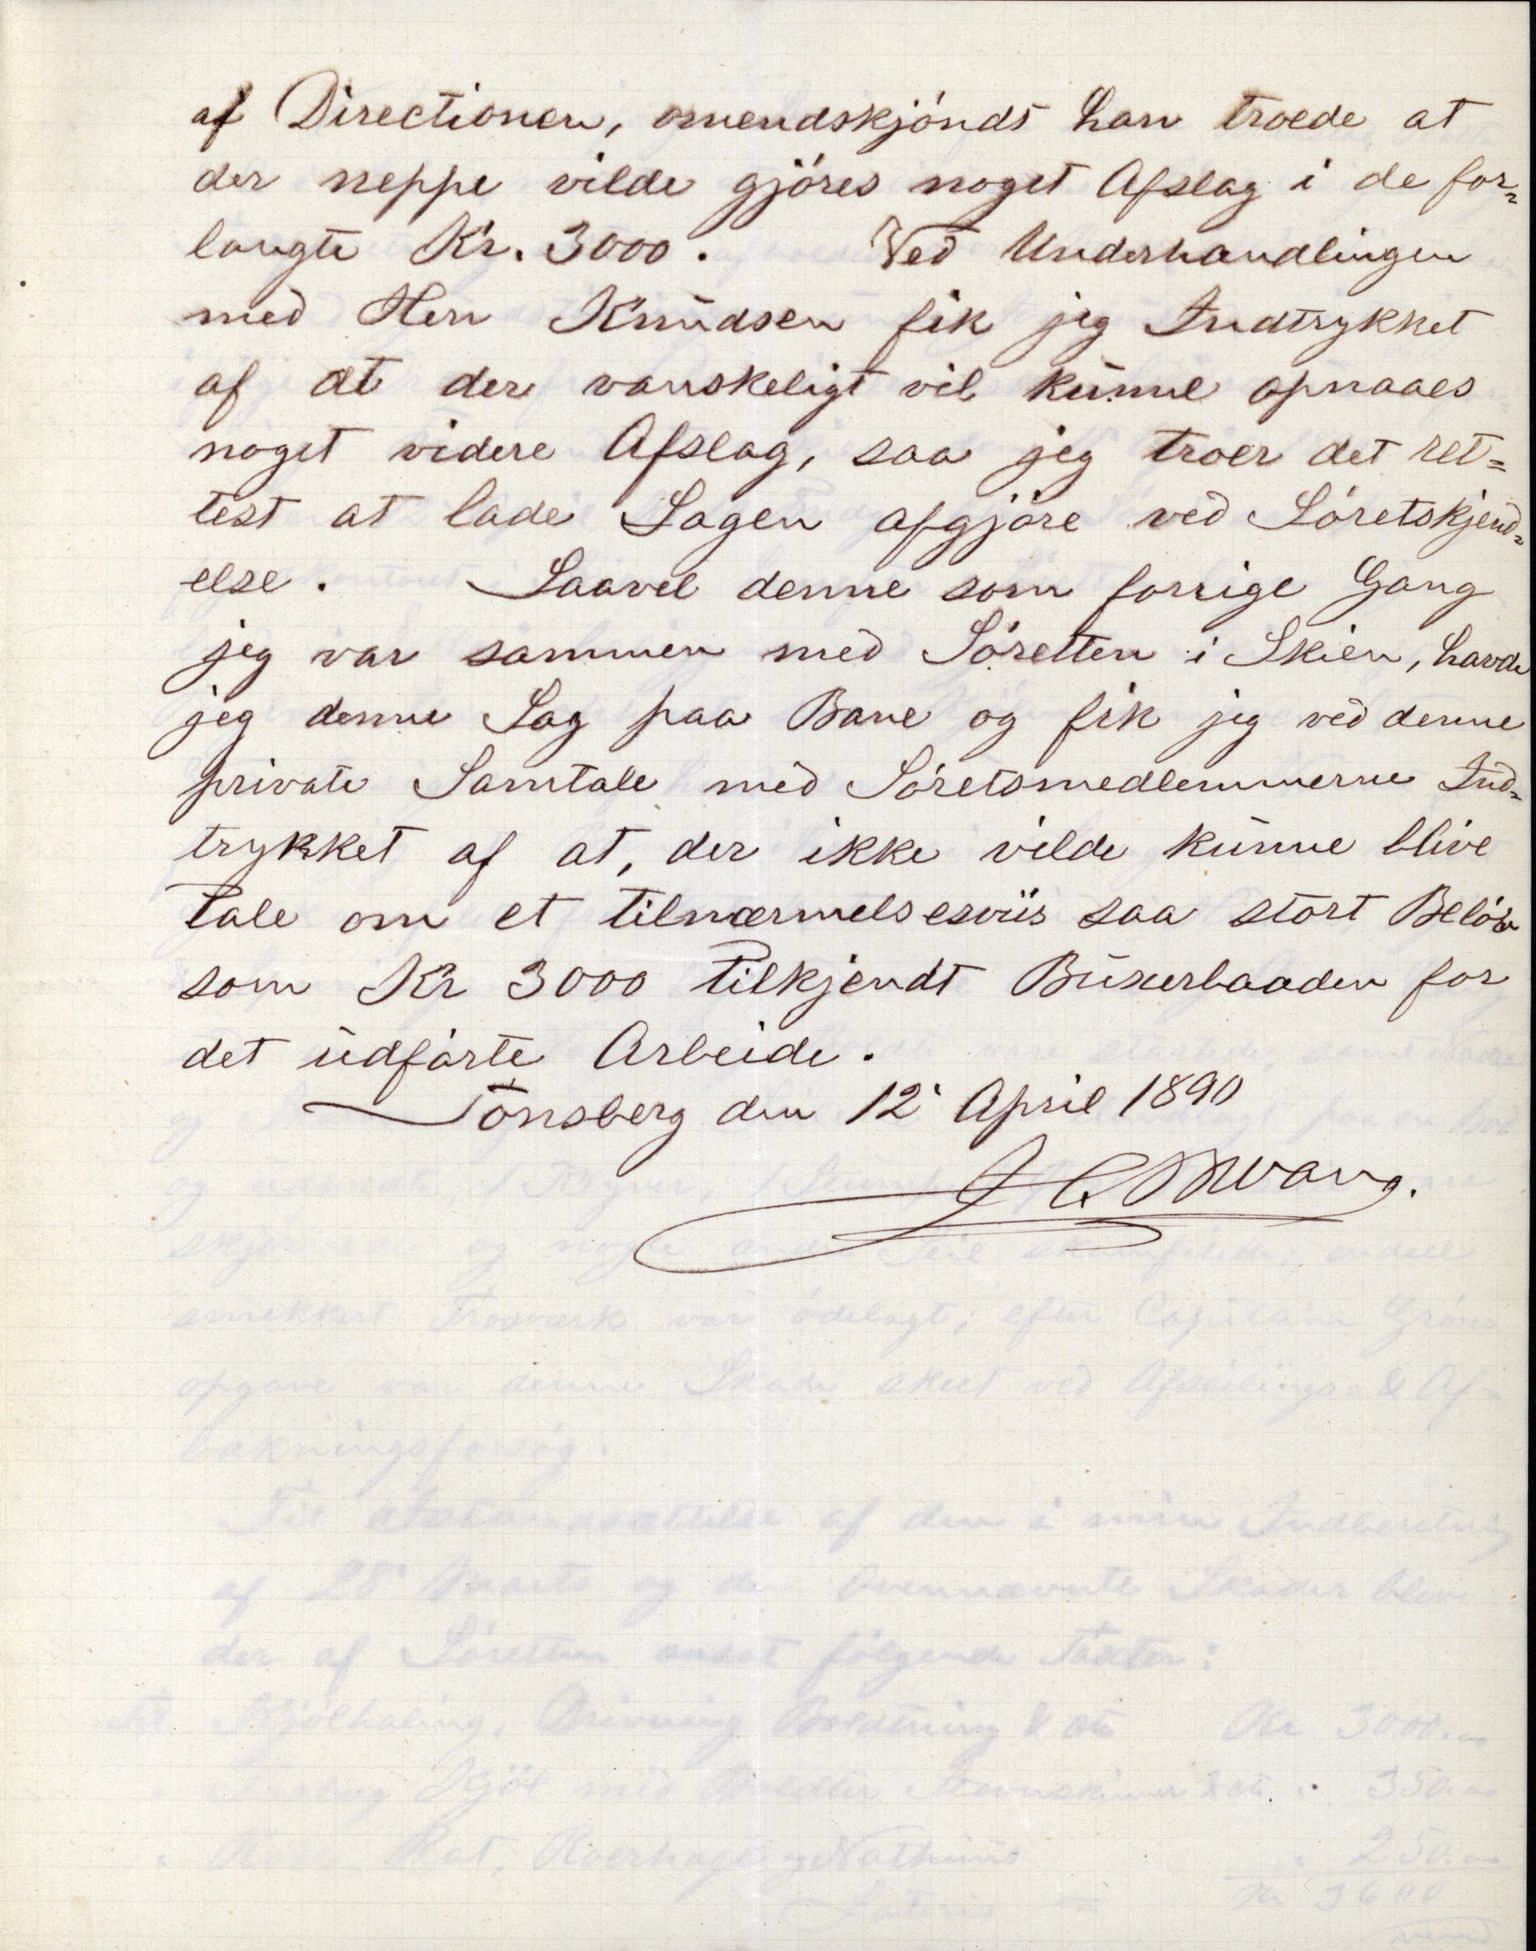 af Directionen, omendskjøndt han troede at
der neppe vilde gjøres noget Afslag i de for=
langte Kr. 3000. Ved Underhandlingen
med Herr Knudsen fik jeg Indtrykket
af at der vanskeligt vil kunne opnaaes
noget videre Afslag, saa jeg troer det ret=
test at lade Sagen afgjøre ved Søretskjend=
else. Saavel denne som forrige Gang
jeg var sammen med Søretten i Skien, havde
jeg denne Sag paa Bane og fik jeg ved denne
private Samtale med Søretsmedlemmerne Ind=
trykket af at, der ikke vilde kunne blive
tale om et tilnærmelsesviis saa stort Beløb
som Kr 3000 tilkjendt Buxerbaaden for
det udførte Arbeide.
Tønsberg den 12' April 1890